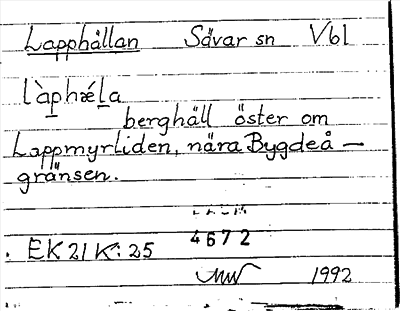 Lapphällan Sävar sn Vbl
làp̲hǽl̲a
berghäll öster om
Lappmyrliden, nära Bygdeå-
gränsen.
4672
EK 21 K: 25
1992